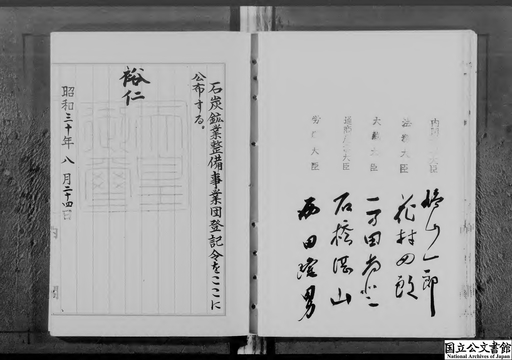 石炭鉱業整備事業団登記令をここに
公布する。
裕仁
昭和三十年八月二十四日
内閣総理大臣 鳩山一郎
法務大臣 花村四郎
大蔵大臣 一万田尚登
通商産業大臣 石橋湛山
労働大臣 西田隆男
国立公文書館
National Archives of Japan